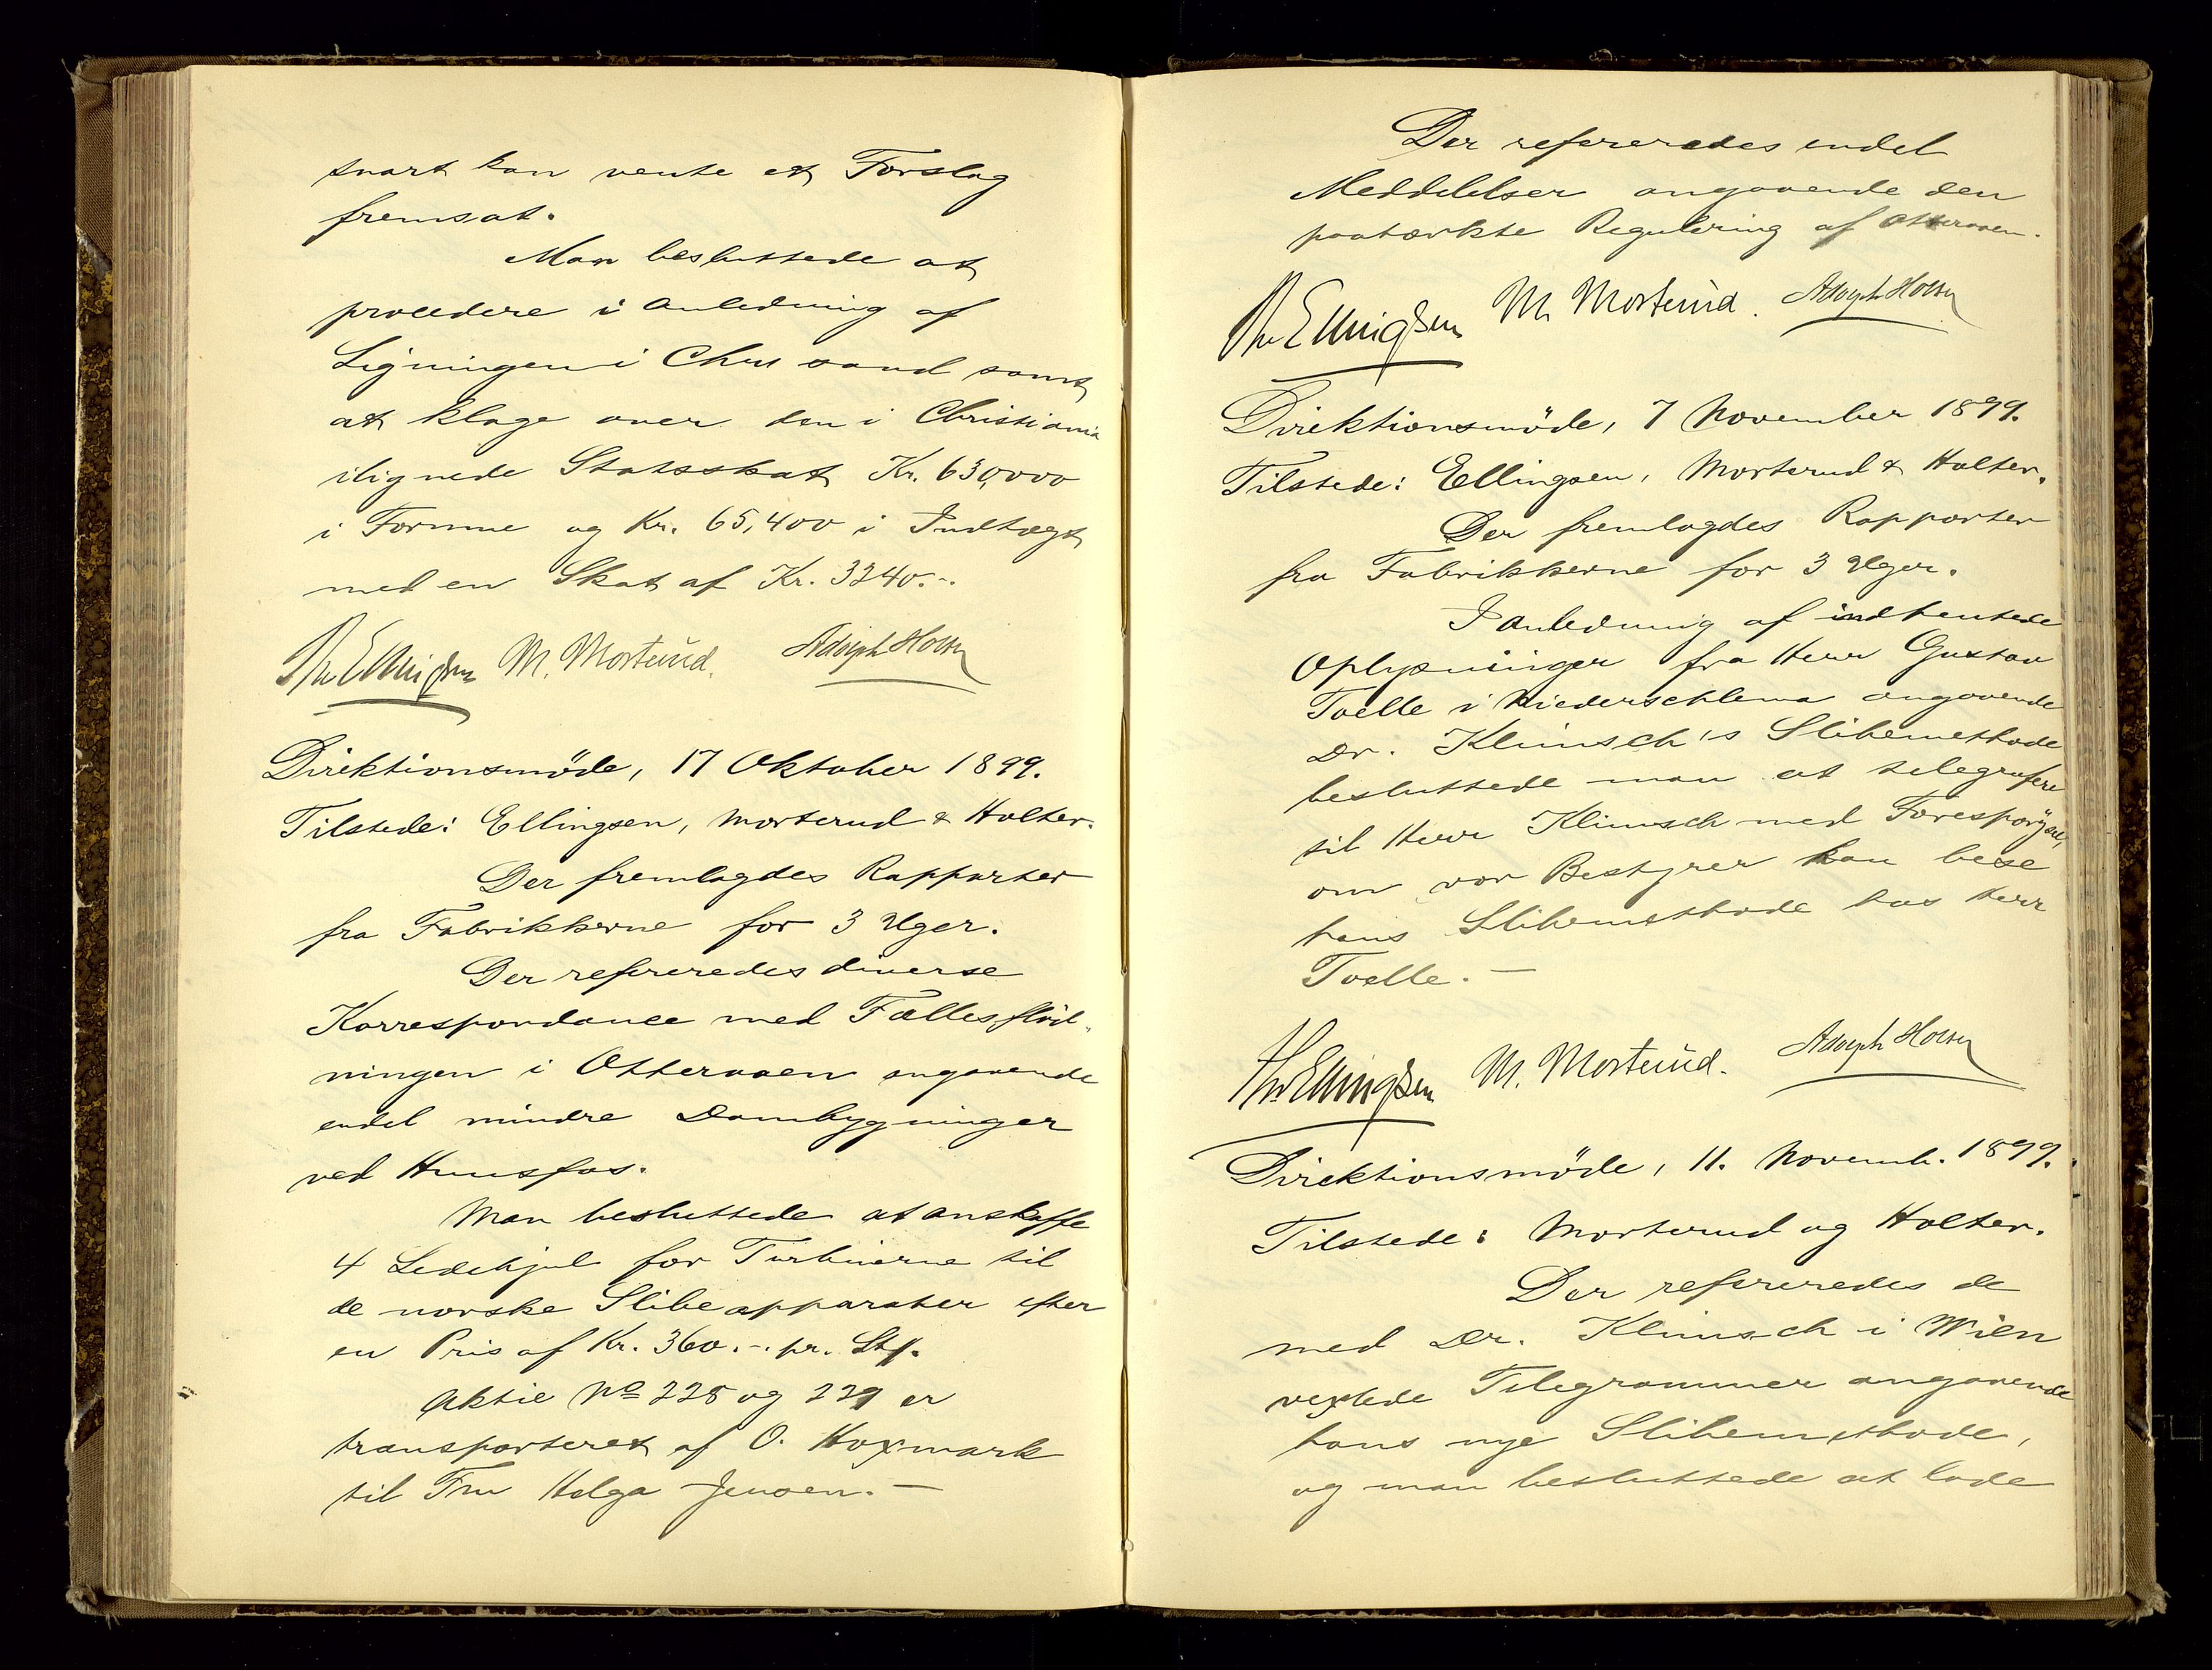 snart kan vente et Forslag
fremsat.
Man besluttede at
procedere i Anledning af
Ligningen i Chrs sand samt
at klage over den i Christiania
ilignede Statsskat Kr. 630,000
i Formue og Kr. 65,400 i Indtægt
med en Skat af Kr. 3240.-.
Th Ellingsen M. Mortерud. Adolph Holter
Direktionsmöde, 17 Oktober 1899.
Tilstede: Ellingsen, Morterud & Holter.
Der fremlagdes Rapporter
fra Fabrikkerne for 3 Uger.
Der refereredes diverse
Korrespondance med Fællesflöd-
ningen i Otteraaen angaaende
endel mindre Dambygninger
ved Hunsfos.
Man besluttede at anskaffe
4 Ledehjul for Turbinerne til
de norske Slibeapparater efter
en Pris af Kr. 360.-. pr. Stk.
Aktie No 228 og 229 er
transporteret af O. Hoxmark
til Fru Helga Jensen. —
Der refereredes endel
Meddelelser angaaende den
paatænkte Regulering af Otteraaen.
Th Ellingsen M. Morterud. Adolph Holter
Direktionsmöde, 7 November 1899.
Tilstede: Ellingsen, Morterud & Holter.
Der fremlagdes Rapporter
fra Fabrikkerne for 3 Uger.
I Anledning af indhentede
Oplysninger fra Herr Gustav
Toelle i Niederschlema angaaende
Dr. Klimsch's Slibemethode
besluttede man at telegrafere
til Herr Klimsch med Forespörgsel,
om vor Bestyrer kan bese
hans Slibemethode hos Herr
Toelle. —
Th Ellingsen M. Morterud. Adolph Holter
Direktionsmöde, 11. Novemb. 1899.
Tilstede: Morterud og Holter.
Der refereredes de
med Dr. Klimsch i Wien
vexlede Telegrammer angaaende
hans nye Slibemethode,
og man besluttede at lade